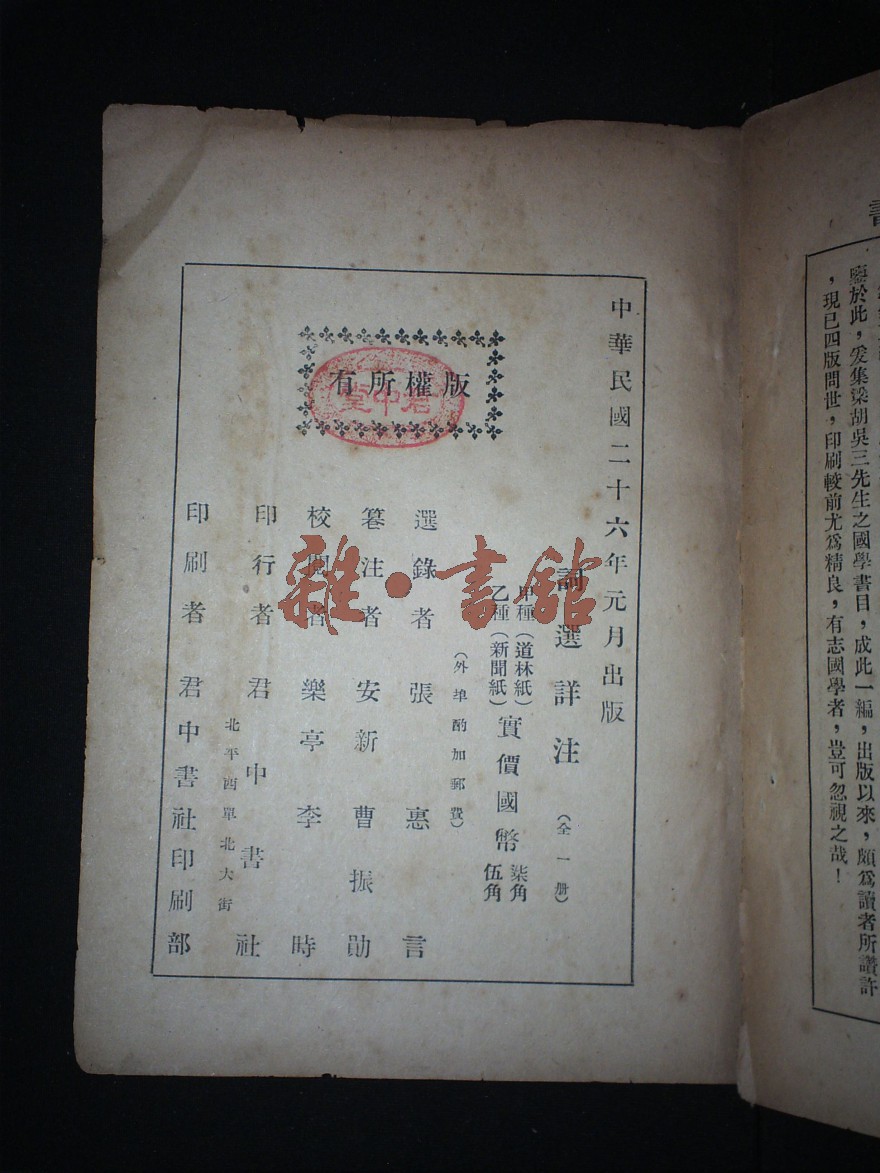 鑒於此，爰集梁胡吳三先生之國學書目，成此一編，出版以來，頗為讀者所讚許
，現已四版問世，印刷較前尤為精良，有志國學者，豈可忽視之哉！
中華民國二十六年元月出版
詞選詳注（全一冊）
甲種（道林紙）
乙種（新聞紙）
實價國幣
柒角
伍角
（外埠酌加郵費）
版權所有
君中堂
選錄者 張惠言
篹注者 安新曹振勛
校閱者 樂亭李時
印行者 君中書社
北平西單北大街
印刷者 君中書社印刷部
雜·書館